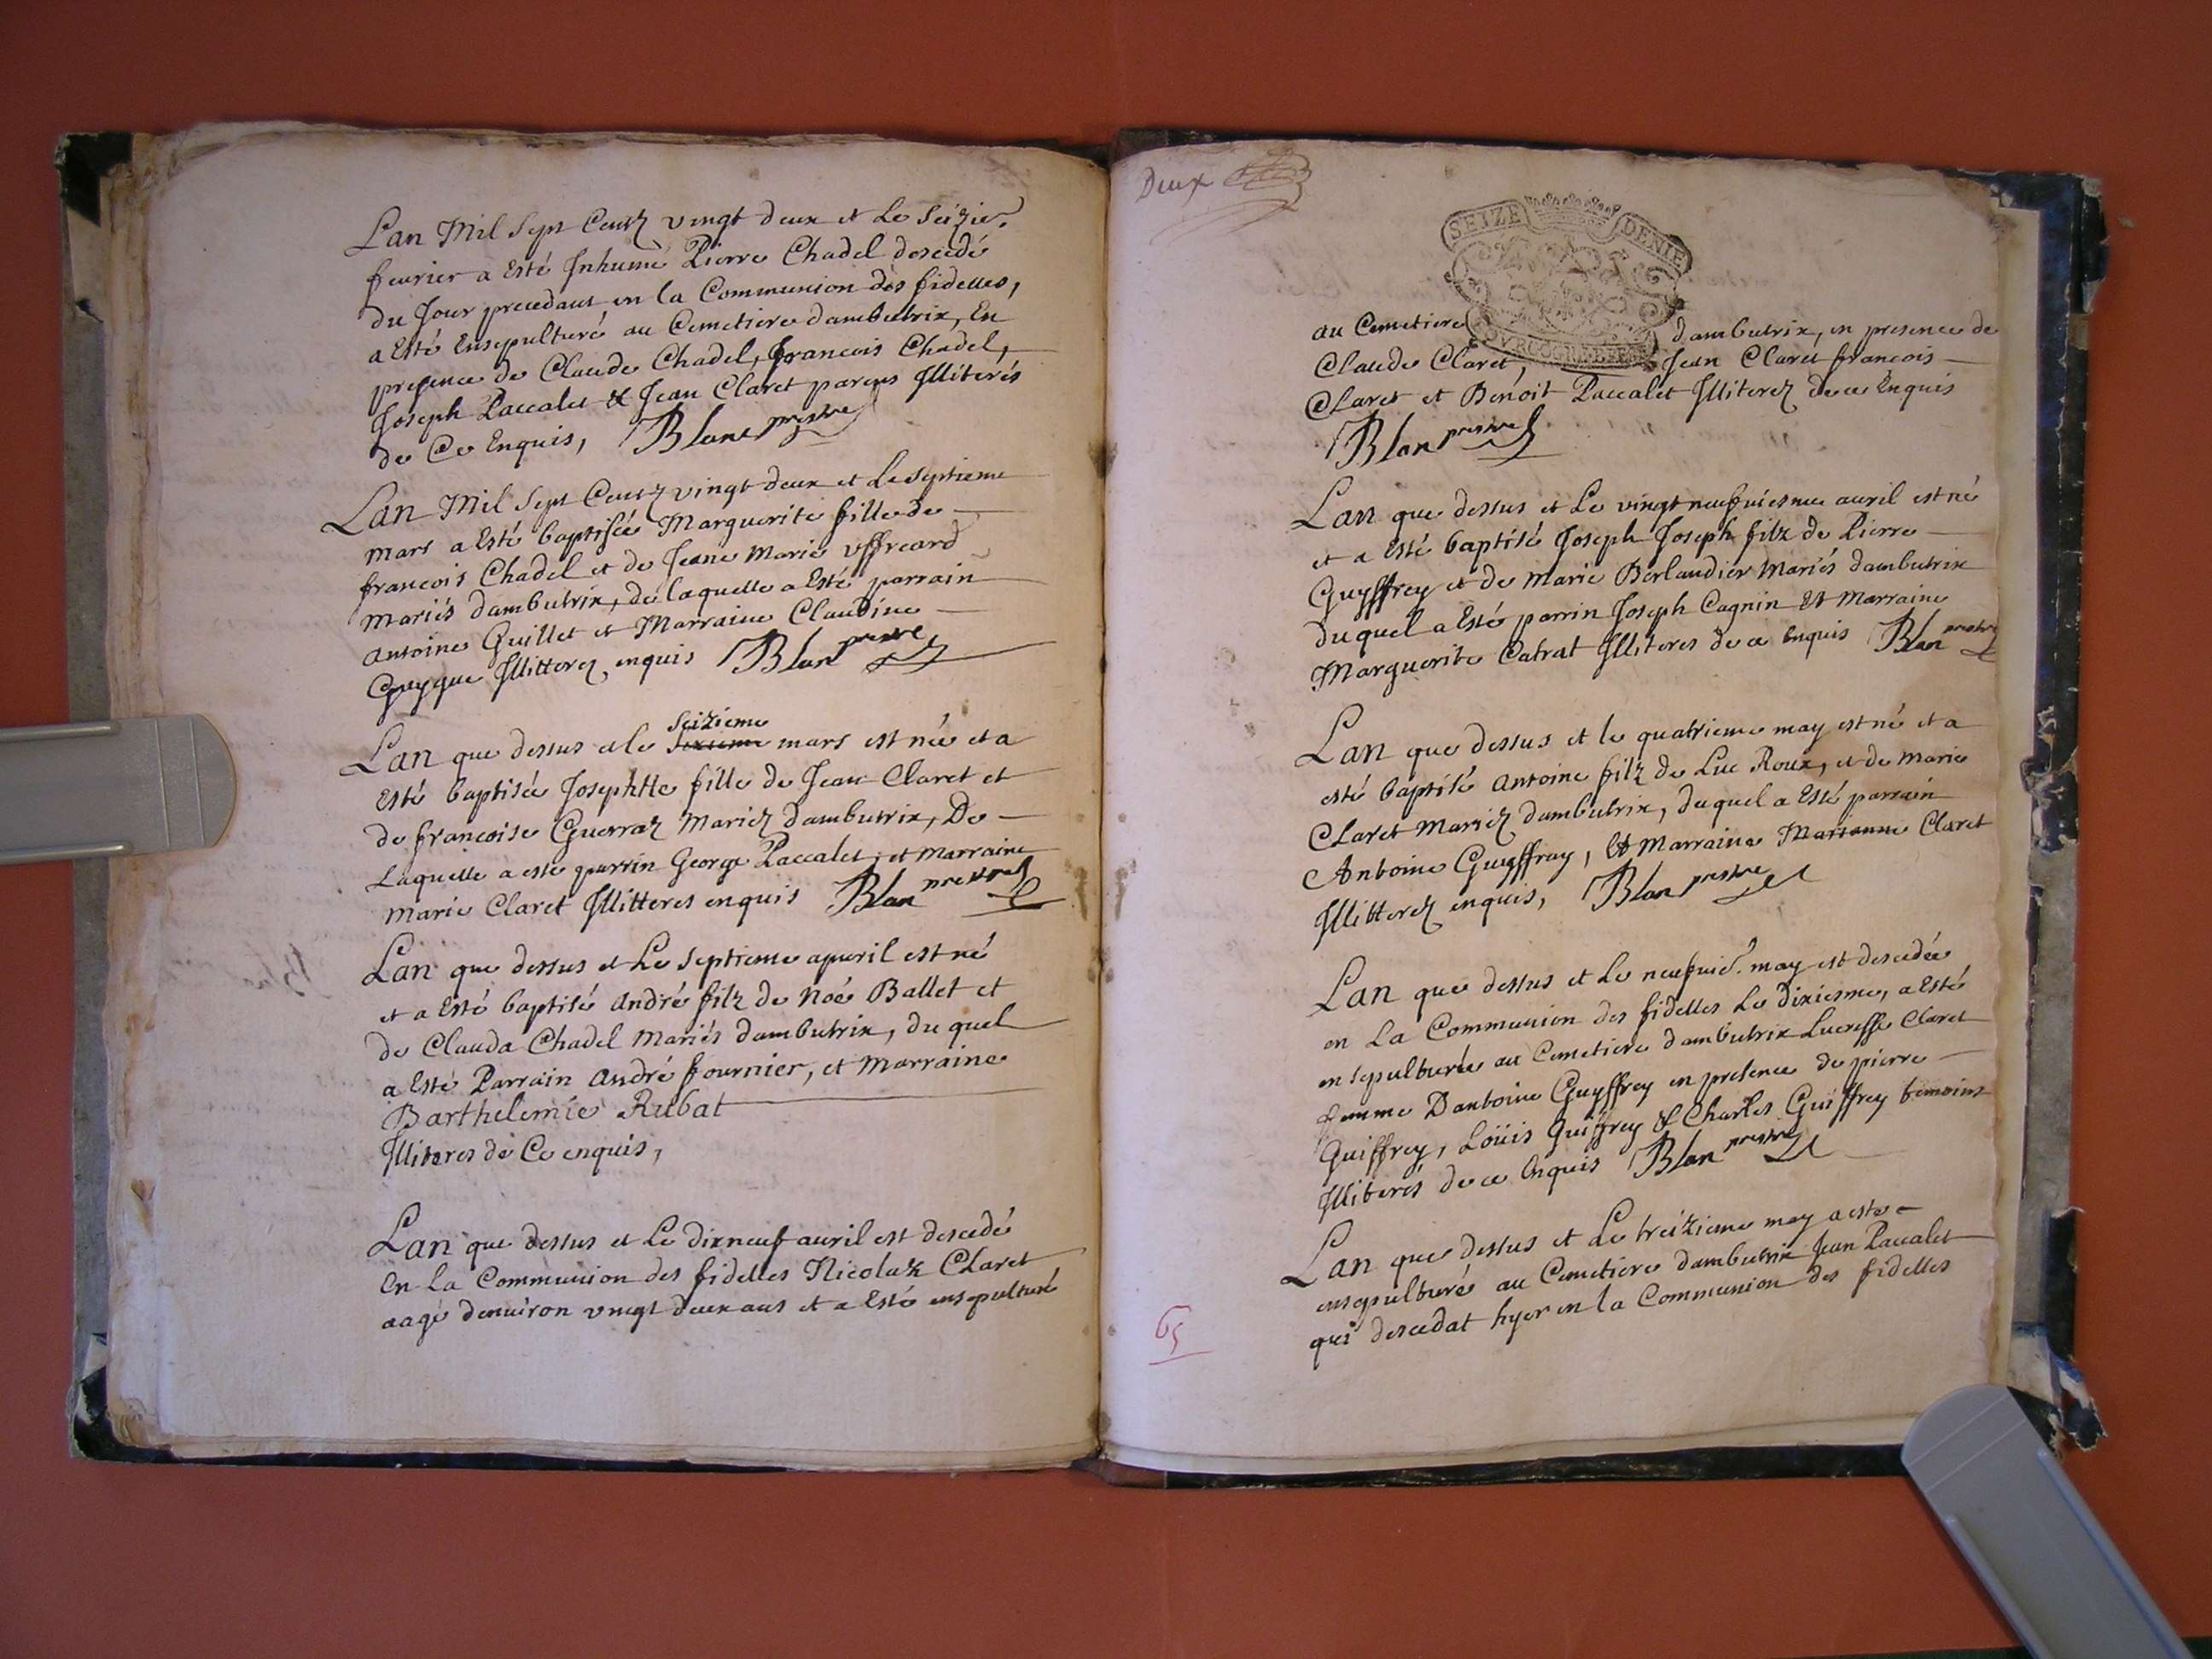 Lan Mil Sept Centz vingt deux et Le Seizie.
feurier a Esté Inhumé Pierre Chadel desedé
du Jour precedant en la Communion des fidelles,
a Esté Ensepulturé au Cemetiere dambutrix, En
presence de Claude Chadel, francois Chadel,
Joseph Paccalet & Jean Claret parens Illiterés
de Ce Enquis, Blanc prestre
Lan Mil Sept Centz vingt deux et Le septieme
mars a Esté baptisée Marguerite fille de
francois Chadel et de Jeane Marie uffreard
mariés dambutrix, de laquelle a Esté parrain
antoine Guillet et Marraine Claudine
Guygue Illitterez enquis Blan prestre
Seizieme
Lan que dessus et le mars est née et a
Esté baptisée Josephtte fille de Jean Claret et
de francoise Guerraz Mariez dambutrix, De
Laquelle a esté parrin George Paccalet, et marraine
marie Claret Illitteres enquis Blan prestre
Lan que dessus et Le Septieme apuril est né
et a Esté baptisé andré filz de Noé Ballet et
de Clauda Chadel Mariés dambutrix, du quel
a Esté Parrain andré fournier, et Marraine
Barthelemie Rubat
Illiteres de Ce enquis,
Lan que dessus et Le dixneuf auril est desedé
En La Communion des fidelles Nicolaz Claret
aagé denuiron vingt deux ans et a Esté ensepulturé
Deux
SEIZE DENIE
au Cemetiere dambutrix, en presence de
Claude Claret, Jean Claret francois
Claret et Benoit Paccalet Illiterez de ce Enquis
Blan prestre
Lan que dessus et Le vingt neufuiesme auril est né
et a Esté baptisé Joseph Joseph filz de Pierre
Guyffrey et de marie Berlandier Mariés dambutrix
duquel a Esté parrin Joseph Cagnin Et Marraine
Marguerite Catrat Illiteres de ce Enquis Blan prestre
Lan que dessus et le quatrieme may est né et a
esté baptisé antoine filz de Luc Roux, et de marie
Claret Mariez dambutrix, duquel a Esté parrain
Antoine Guyffray, Et Marraine Marianne Claret
Illitterez enquis, Blan prestre
Lan que dessus et Le neufuié. may est desedée
en La Communion des fidelles Le dixiesme, a Esté
ensepulturée au Cemetiere dambutrix Lucresse Claret
femme Dantoine Guyffrey en presence de pierre
Guiffrey, Loüis Guiffrey & Charles Guiffrey temoins
Illiterés de ce Enquis Blan prestre
Lan que dessus et Le treizieme may a esté
ensepulturé au Cemetiere dambutrix Jean Paccalet
qui desedat hyer en la Communion des fidelles
65